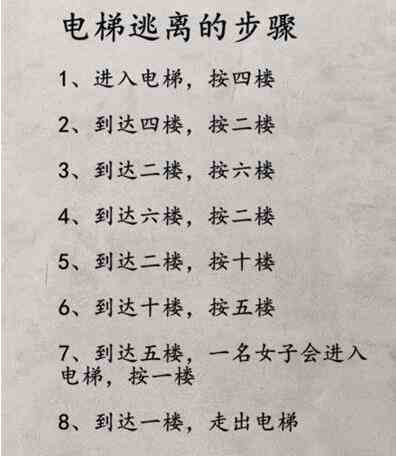 电梯逃离的步骤
1、进入电梯，按四楼
2、到达四楼，按二楼
3、到达二楼，按六楼
4、到达六楼，按二楼
5、到达二楼，按十楼
6、到达十楼，按五楼
7、到达五楼，一名女子会进入
电梯，按一楼
8、到达一楼，走出电梯